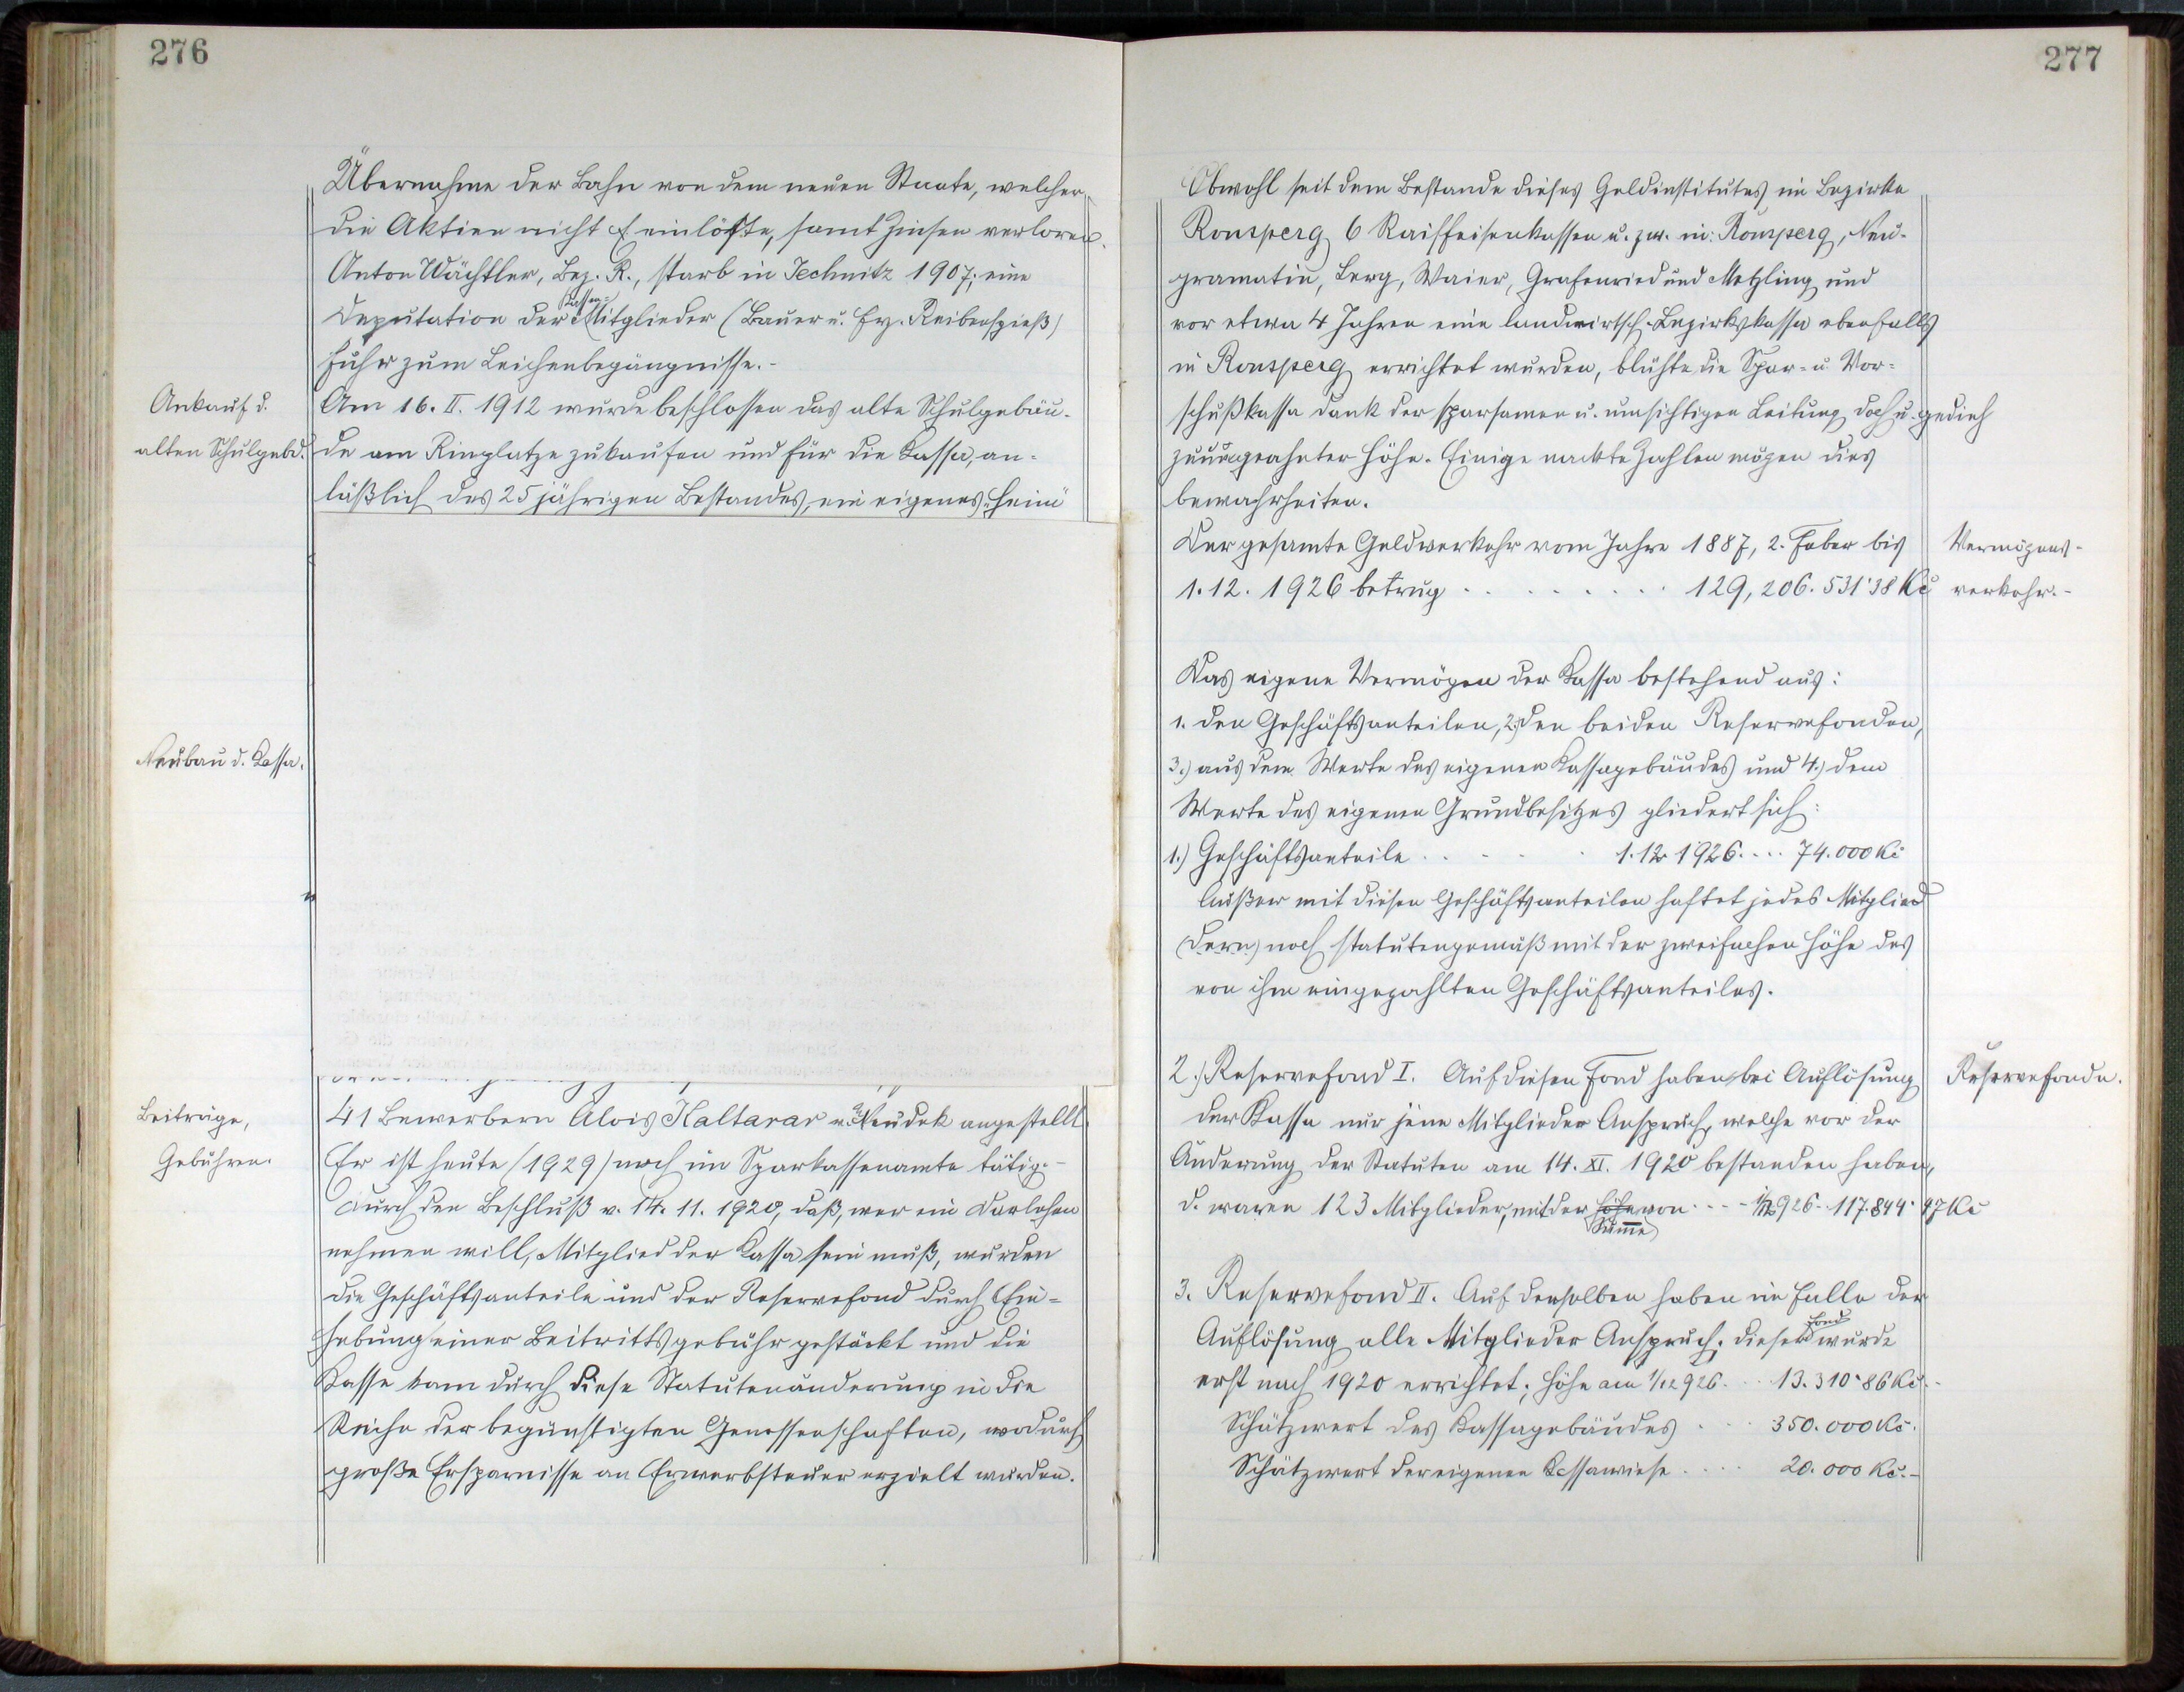 276
Übernahme der Bahn von dem neuen Staate, welcher
die Aktien nicht einlöste, samt Zinsen verloren.
Anton Wächtler, Bez. R., starb in Technitz 1907; eine
Deputation der Kassen-Mitglieder (Bauer u. Frz. Reibenspieß)
fuhr zum Leichenbegängnisse.-
Ankauf d.
alten Schulgebd.
Am 16. II. 1912 wurde beschlossen das alte Schulgebäu-
de am Ringplatze zu kaufen und für die Kassa, an-
läßlich des 25 jährigen Bestandes, ein eigenes „Heim"
Neubau d. Kassa.
Beiträge,
Gebühren.
41 Bewerbern Alois Kaltarar a. Neudek angestellt.
Er ist heute (1929) noch im Sparkassenamte tätig.-
Durch den Beschluß v. 14. 11. 1920, daß, wer ein Darlehen
nehmen will, Mitglied der Kassa sein muß, wurden
die Geschäftsanteile und der Reservefond durch Ein-
hebung einer Beitrittsgebühr gestärkt und die
Kasse kam durch diese Statutenänderung in die
Reihe der begünstigten Genossenschaften, wodurch
große Ersparnisse an Erwerbsteuer erzielt wurden.
277
Obwohl seit dem Bestande dieses Geldinstitutes im Bezirke
Ronsperg 6 Raiffeisenkassen u. zw. in: Ronsperg, Neu-
gramatin, Berg, Waier, Grafenried und Metzling und
vor etwa 4 Jahren eine landwirtsch. Bezirkskassa ebenfalls
in Ronsperg errichtet wurden, blühte die Spar- u. Vor-
schußkassa dank der sparsamen u. umsichtigen Leitung doch u. gedieh
zu ungeahnter Höhe. Einige nackte Zahlen mögen dies
bewahrheiten.
Der gesamte Geldverkehr vom Jahre 1887, 2. Feber bis
1. 12. 1926 betrug . . . . . . . . . 129,206.531'38 Kč
Vermögens-
verkehr.-
Das eigene Vermögen der Kassa bestehend aus:
1. den Geschäftsanteilen, 2.) den beiden Reservefonden,
3.) aus dem Werte des eigenen Kassagebäudes und 4.) dem
Werte des eigenen Grundbesitzes gliedert sich:
1.) Geschäftsanteile . . . . . 1. 12. 1926 .... 74.000 Kč
Außer mit diesen Geschäftsanteilen haftet jedes Mitglied
(dern) noch statutengemäß mit der zweifachen Höhe des
von ihm eingezahlten Geschäftsanteiles.
2.) Reservefond I. Auf diesen Fond haben bei Auflösung
Reservefonde.
der Kassa nur jene Mitglieder Anspruch, welche vor der
Änderung der Statuten am 14. XI. 1920 bestanden haben,
d. waren 123 Mitglieder, mit der Höhe Summe von ---- 1/12 926 - 117.844'97 Kč
3. Reservefond II. Auf denselben haben im Falle der
Auflösung alle Mitglieder Anspruch; dieser Fond wurde
erst nach 1920 errichtet; Höhe am 1/12 926 . . . 13.310'86 Kč.-
Schätzwert des Kassagebäudes . . . 350.000 Kč.
Schätzwert der eigenen Kassawiese .... 20.000 Kč.-